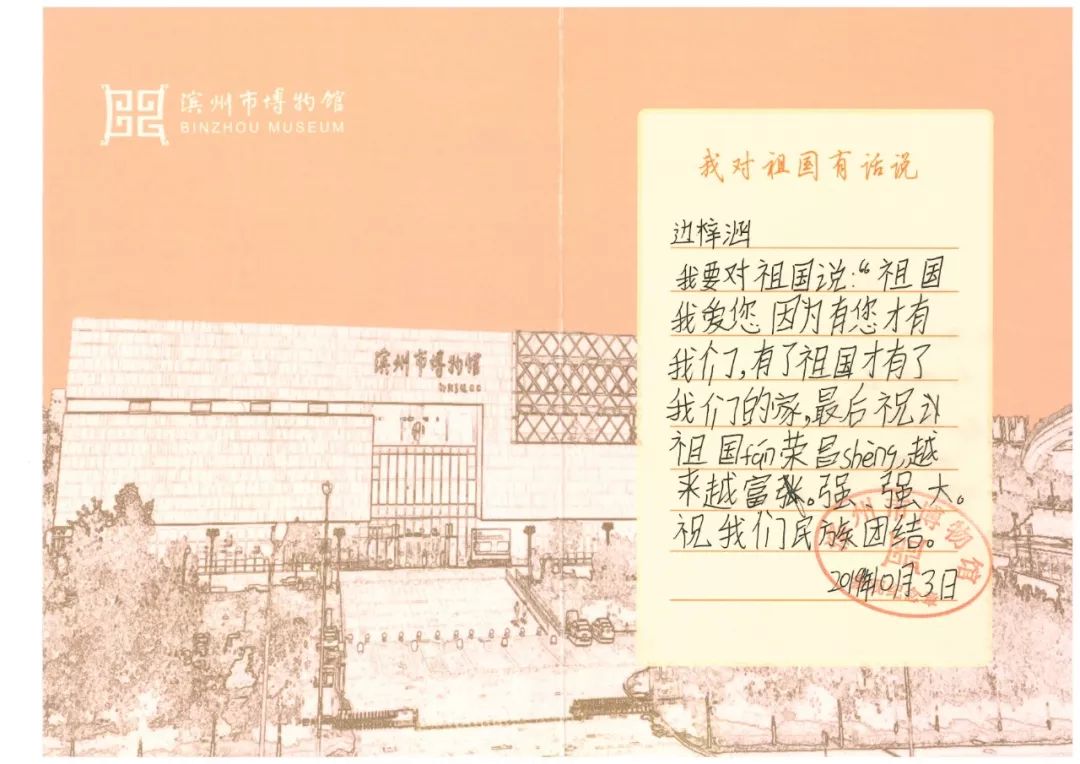 滨州市博物馆
BINZHOU MUSEUM
滨州市博物馆
我对祖国有话说
边梓涵
我要对祖国说:“祖国
我爱您因为有您才有
我们,有了祖国才有了
我们的家,最后祝
祖国fán荣昌shèng,越
来越富强。强大。
祝我们民族团结。
2019年10月3日
州 博物馆